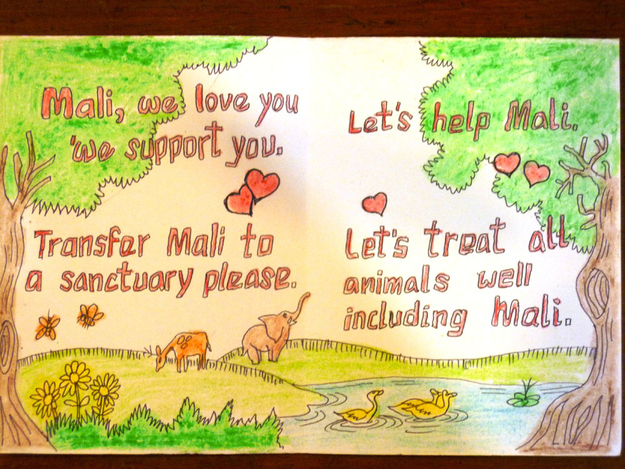 Mali, we love you
we support you.
Transfer Mali to
a sanctuary please.
Let's help Mali.
Let's treat all
animals well
including Mali.